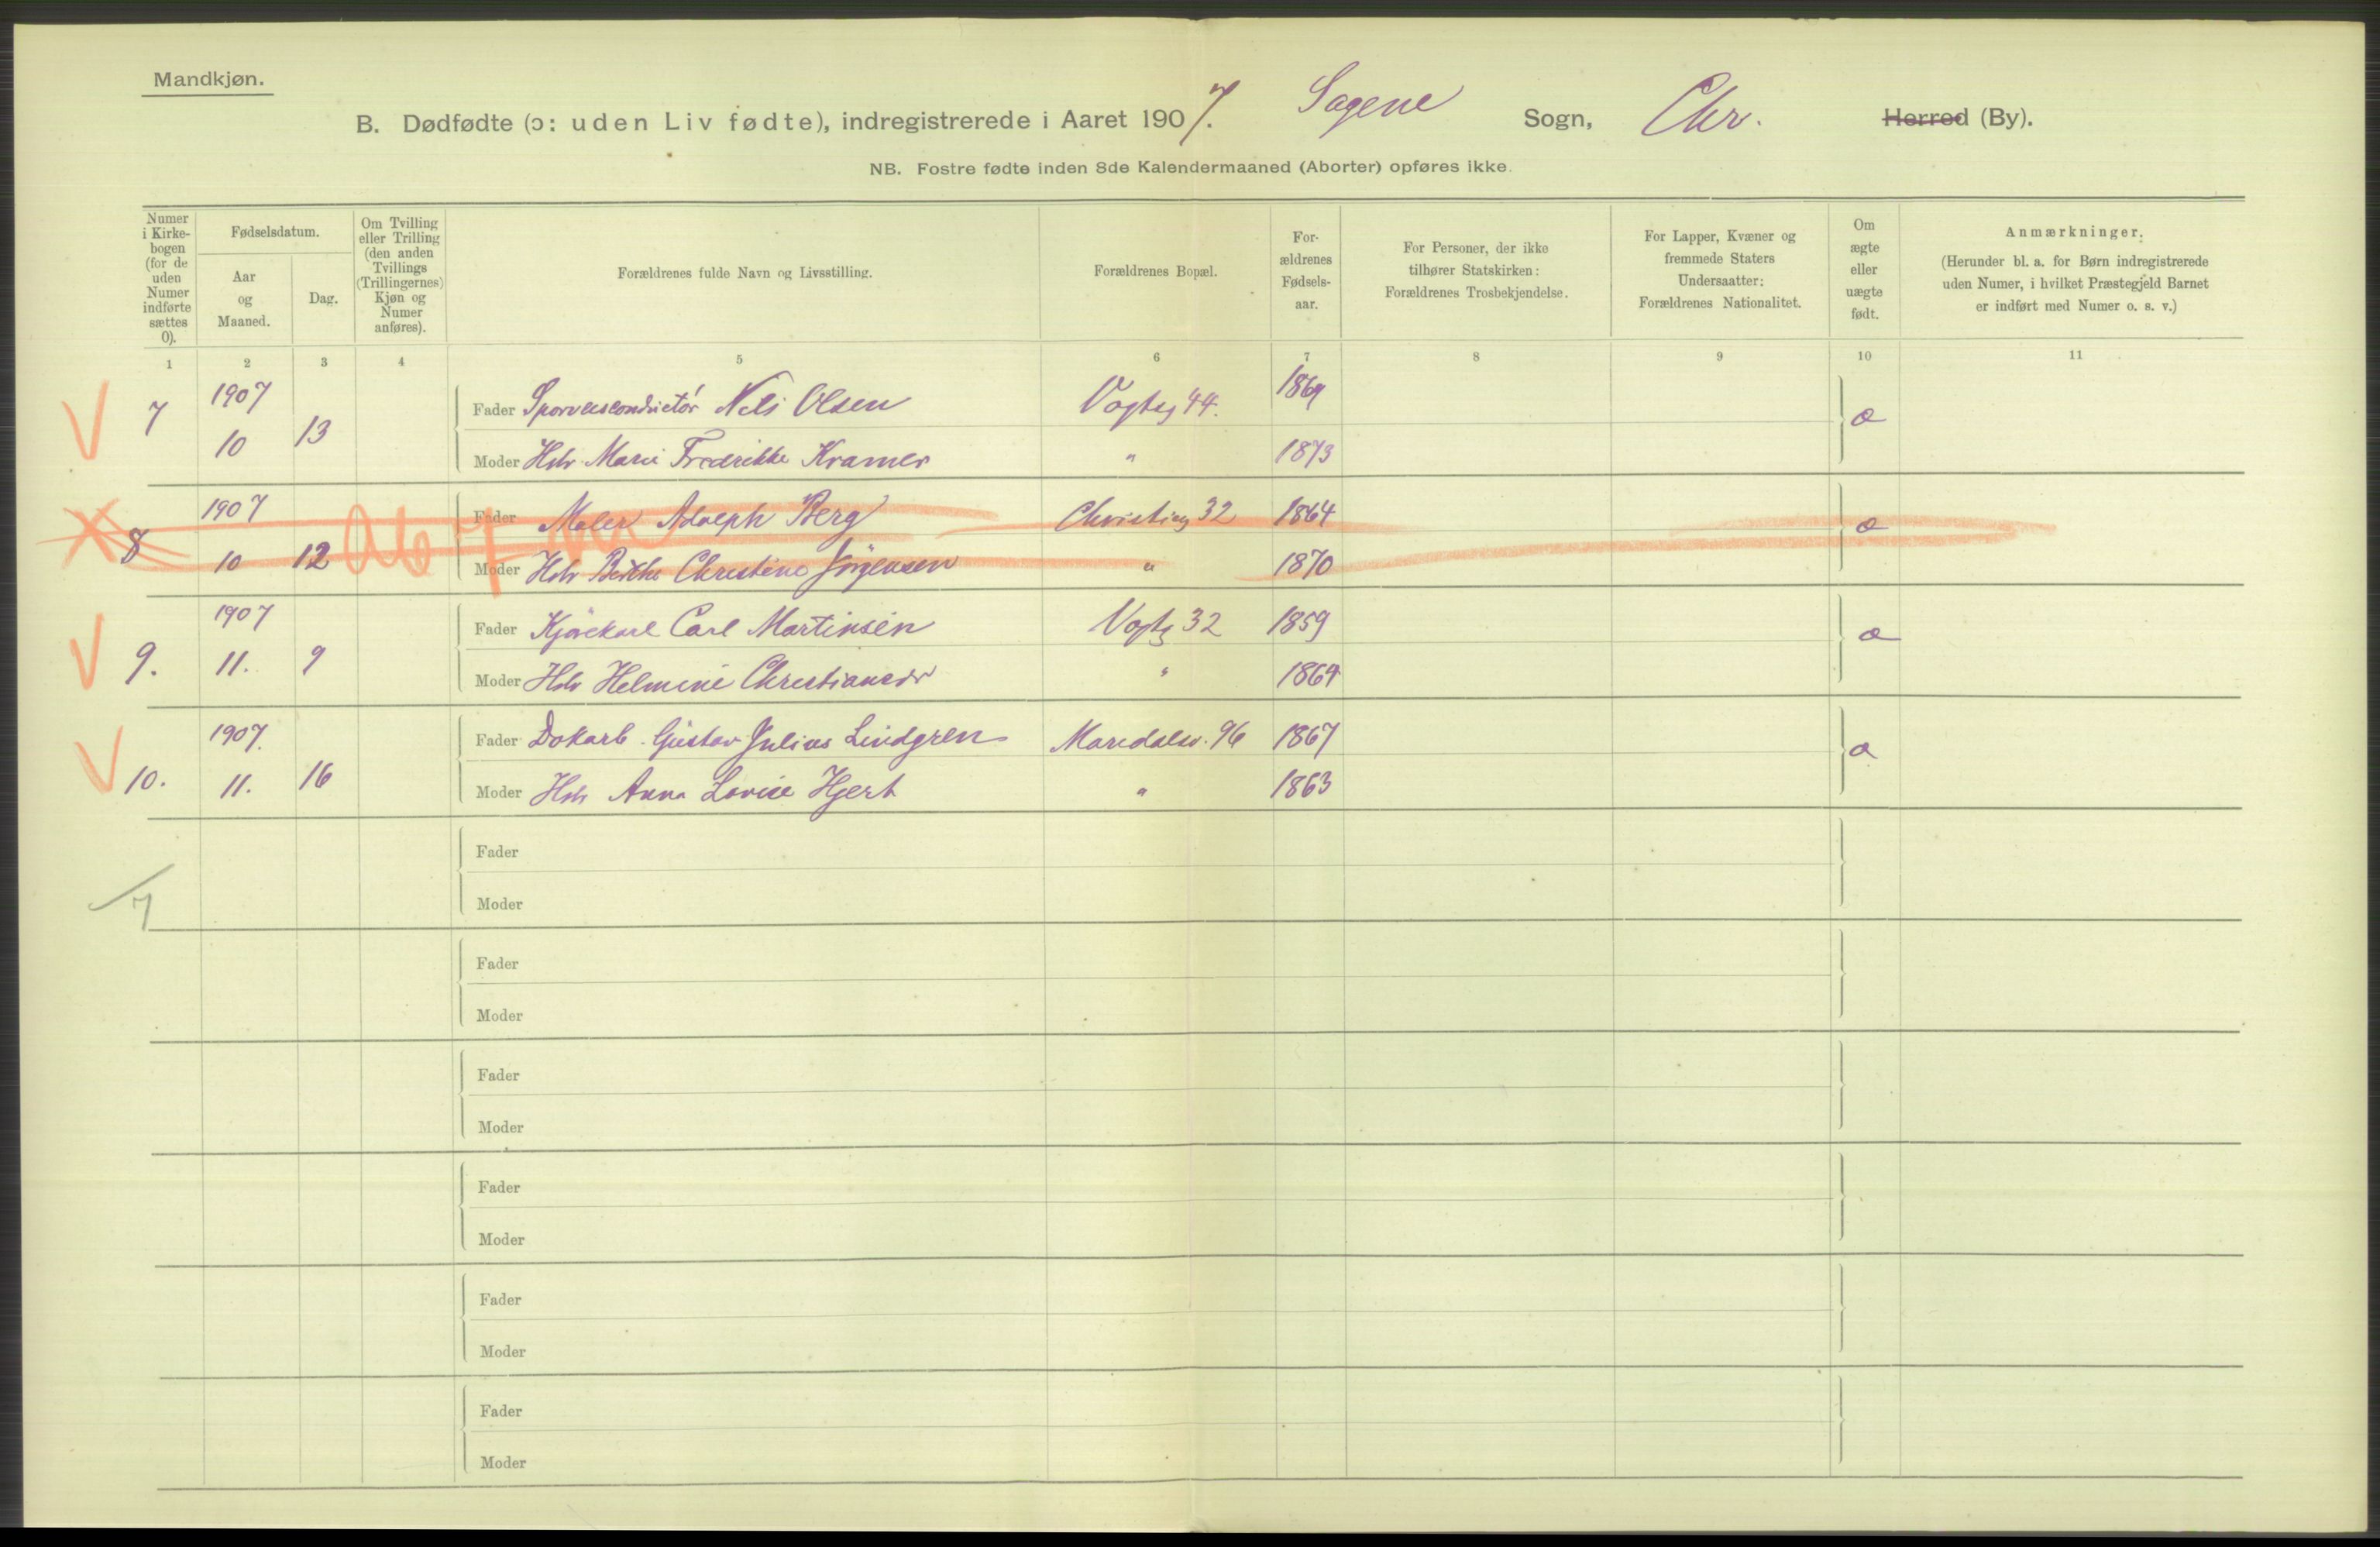 Mandkjøn.
B. Dødfødte (ɔ: uden Liv fødte), indregistrerede i Aaret 1907. Sagene Sogn, Chr. Herred (By).
NB. Fostre fødte inden 8de Kalendermaaned (Aborter) opføres ikke.
Numer i Kirkebogen (for de uden Numer indførte sættes 0).
Fødselsdatum.
Aar og Maaned.
Dag.
Om Tvilling eller Trilling (den anden Tvillings (Trillingernes) Kjøn og Numer anføres).
Forældrenes fulde Navn og Livsstilling.
Forældrenes Bopæl.
Forældrenes Fødselsaar.
For Personer, der ikke tilhører Statskirken: Forældrenes Trosbekjendelse.
For Lapper, Kvæner og fremmede Staters Undersaatter: Forældrenes Nationalitet.
Om ægte eller uægte født.
Anmærkninger.
(Herunder bl. a. for Børn indregistrerede uden Numer, i hvilket Præstegjeld Barnet er indført med Numer o. s. v.)
1 2 3 4 5 6 7 8 9 10 11
7 1907 10 13 Fader Sporveisconductør Nils Olsen Vogtsg 44. 1869 æ
Moder Hstr Marie Fredrikke Kramer " 1873
8 1907 10 12 Fader Maler Adolph Berg Christiesg 32 1864 æ
Moder Hstr Berthe Christine Jørgensen " 1870
9. 1907 11. 9 Fader Kjørekarl Carl Martinsen Vogtsg 32 1859 æ
Moder Hstr Helmine Christiansen " 1864
10. 1907. 11. 16 Fader Dokarb. Gustav Julius Lindgren Maridalsv. 96 1867 æ
Moder Hstr Anna Lovise Hjert " 1863
Fader
Moder
7
Fader
Moder
Fader
Moder
Fader
Moder
Fader
Moder
Fader
Moder